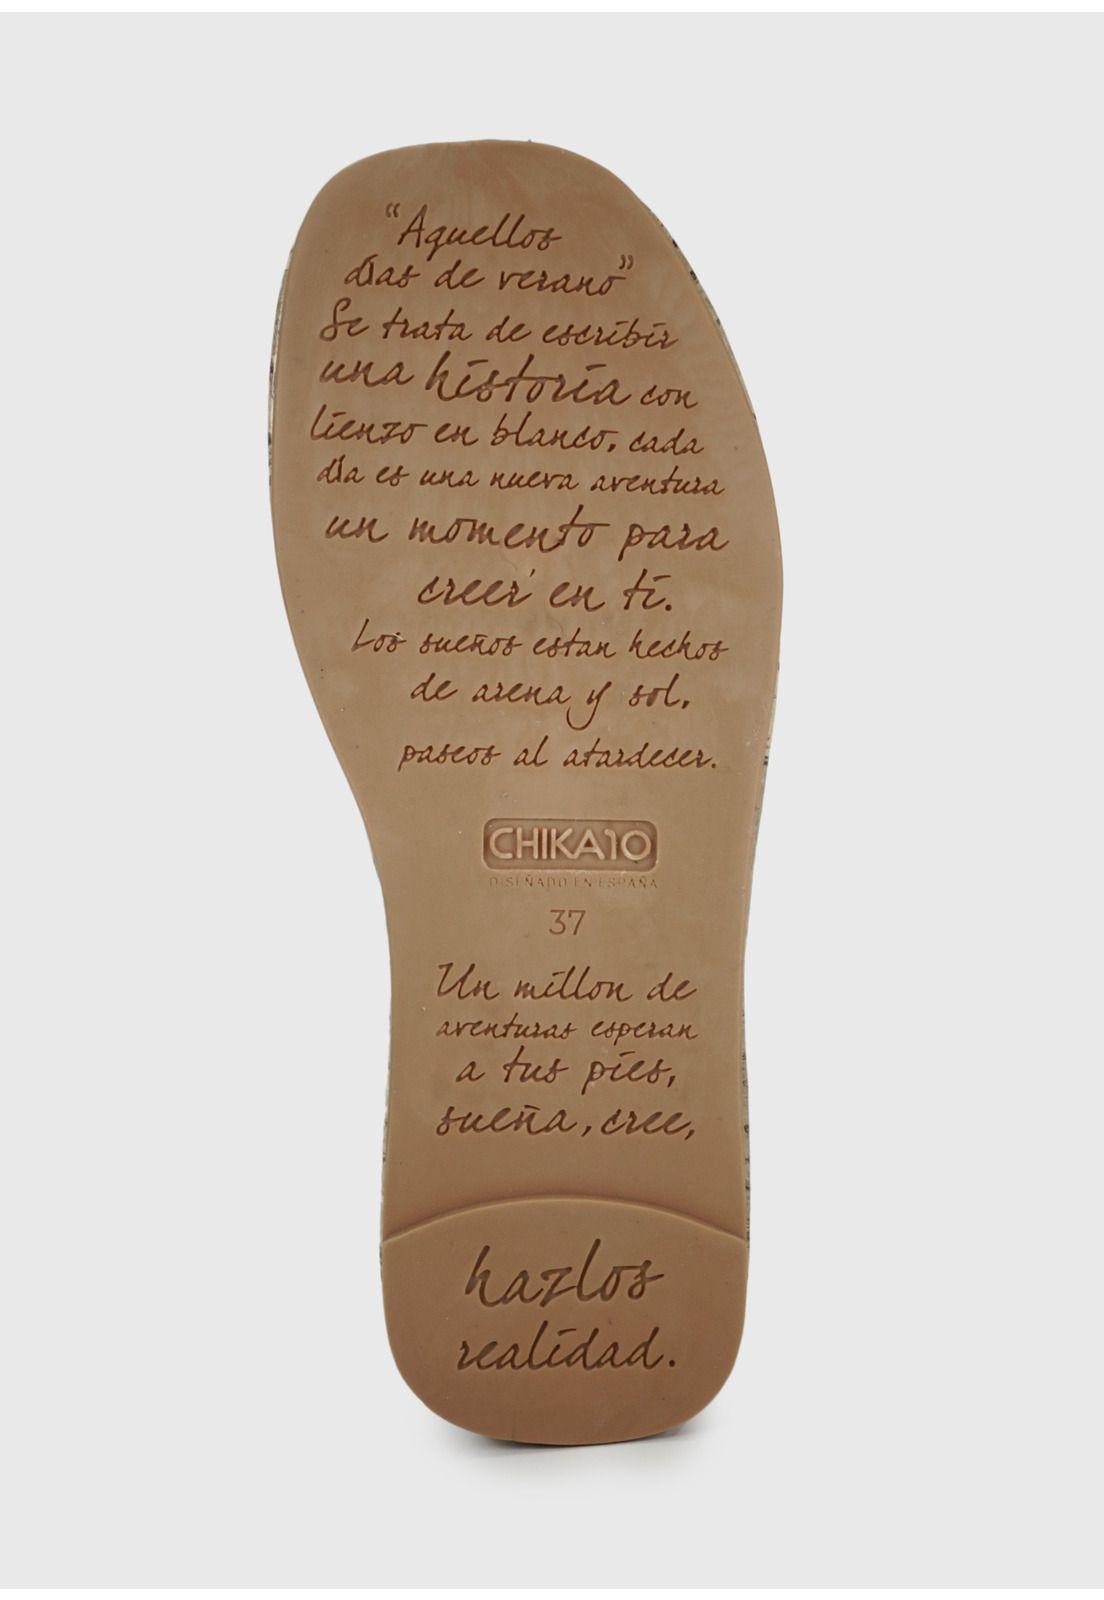 "Aquellos
días de verano"
Se trata de escribir
una historia con
lienzo en blanco, cada
día es una nueva aventura
un momento para
creer en ti.
Los sueños estan hechos
de arena y sol,
paseos al atardecer.
CHIKA10
DISEÑADO EN ESPAÑA
37
Un millon de
aventuras esperan
a tus pies,
sueña, cree,
hazlos
realidad.